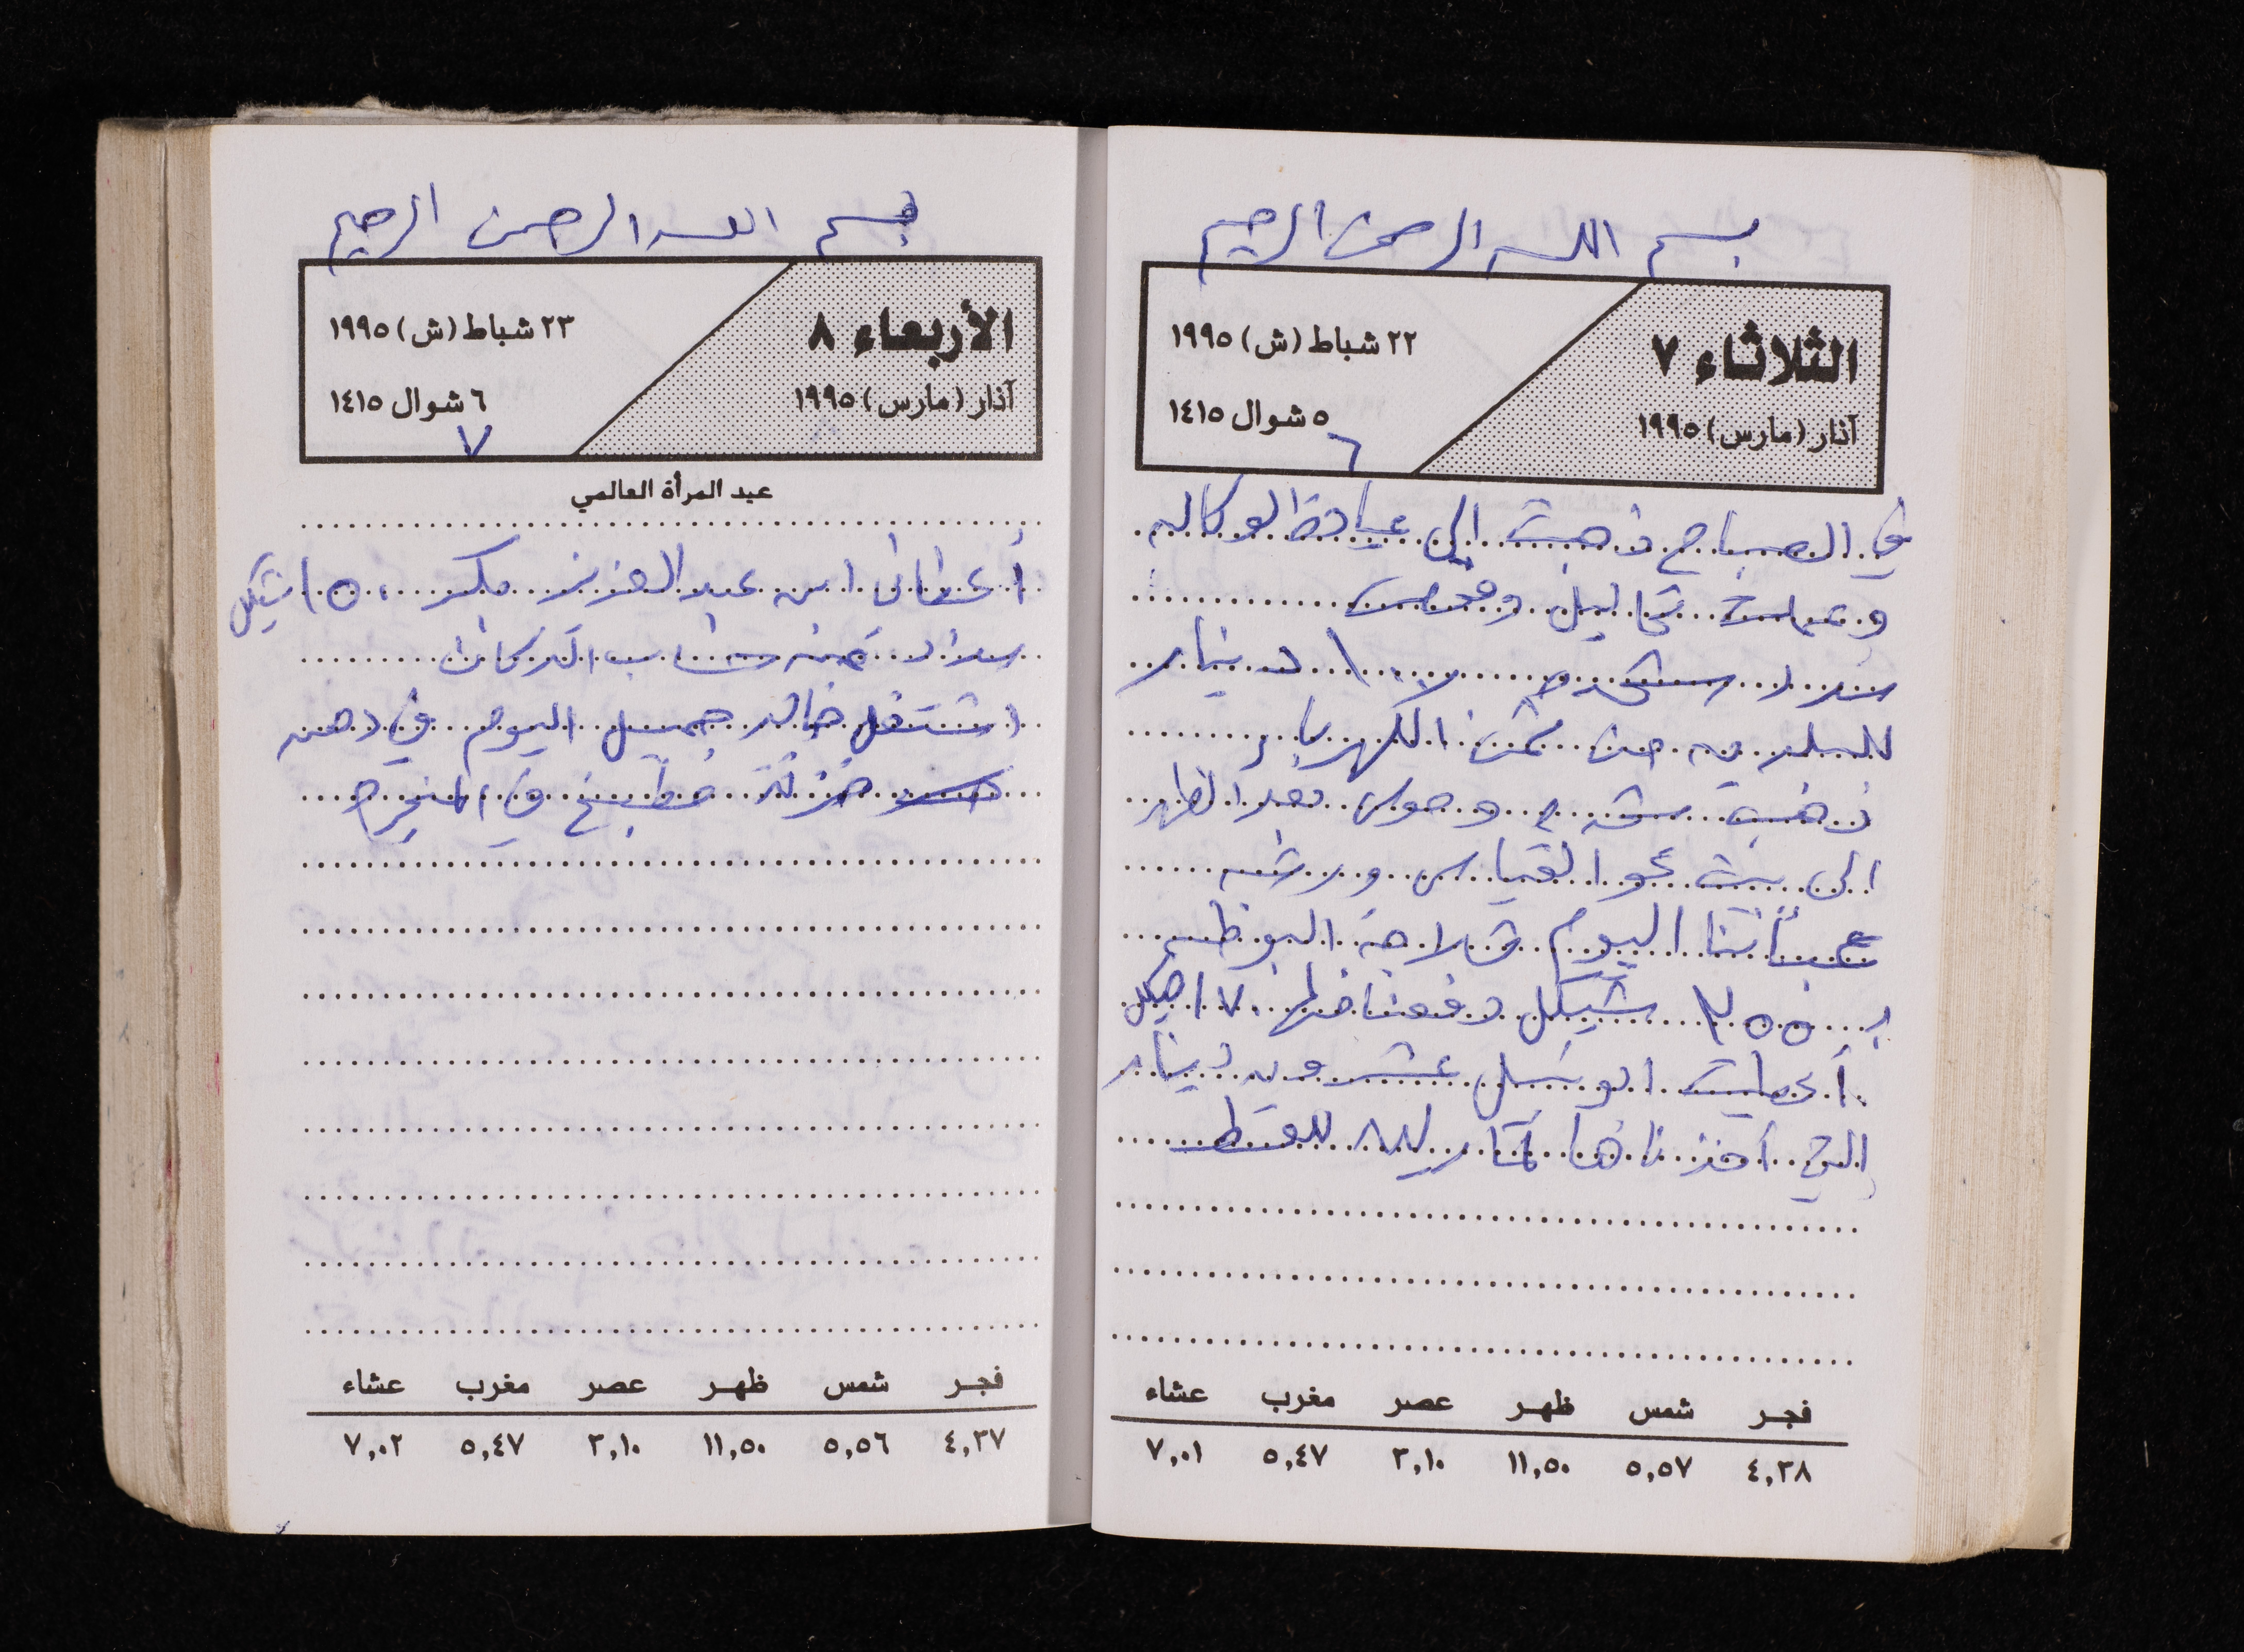 بسم الله الرحمن الرحيم
الثلاثاء ٧
آذار (مارس) ١٩٩٥
٢٢ شباط (ش) ١٩٩٥
٥ شوال ١٤١٥
٦
في الصباح ذهبت إلى عيادة الوكاله
وعملت تحاليل وفحوصات
سدد ١٠٠ دينار
للبلديه من ثمن الكهرباء
ذهبت وموسى بعد الظهر
الى بيت القياس
عبأنا اليوم قلاحة
بـ ٢٥٥ شيكل دفعنا منها ١٧٠ شيكل
أعطيت عشرون دينار
التي أخذناها
بسم الله الرحمن الرحيم
الأربعاء ٨
آذار (مارس) ١٩٩٥
٢٣ شباط (ش) ١٩٩٥
٦ شوال ١٤١٥
٧
عيد المرأة العالمي
أعطاني ابن عبد العزيز ١٥٠ شيكل
سداد باب الدكان
اشتغل خالد جميل اليوم في دهن
خزانة مطبخ في المنجره
فجر شمس ظهر عصر مغرب عشاء
٤,٣٨ ٥,٥٧ ١١,٥٠ ٣,١٠ ٥,٤٧ ٧,٠١
فجر شمس ظهر عصر مغرب عشاء
٤,٣٧ ٥,٥٦ ١١,٥٠ ٣,١٠ ٥,٤٧ ٧,٠٢